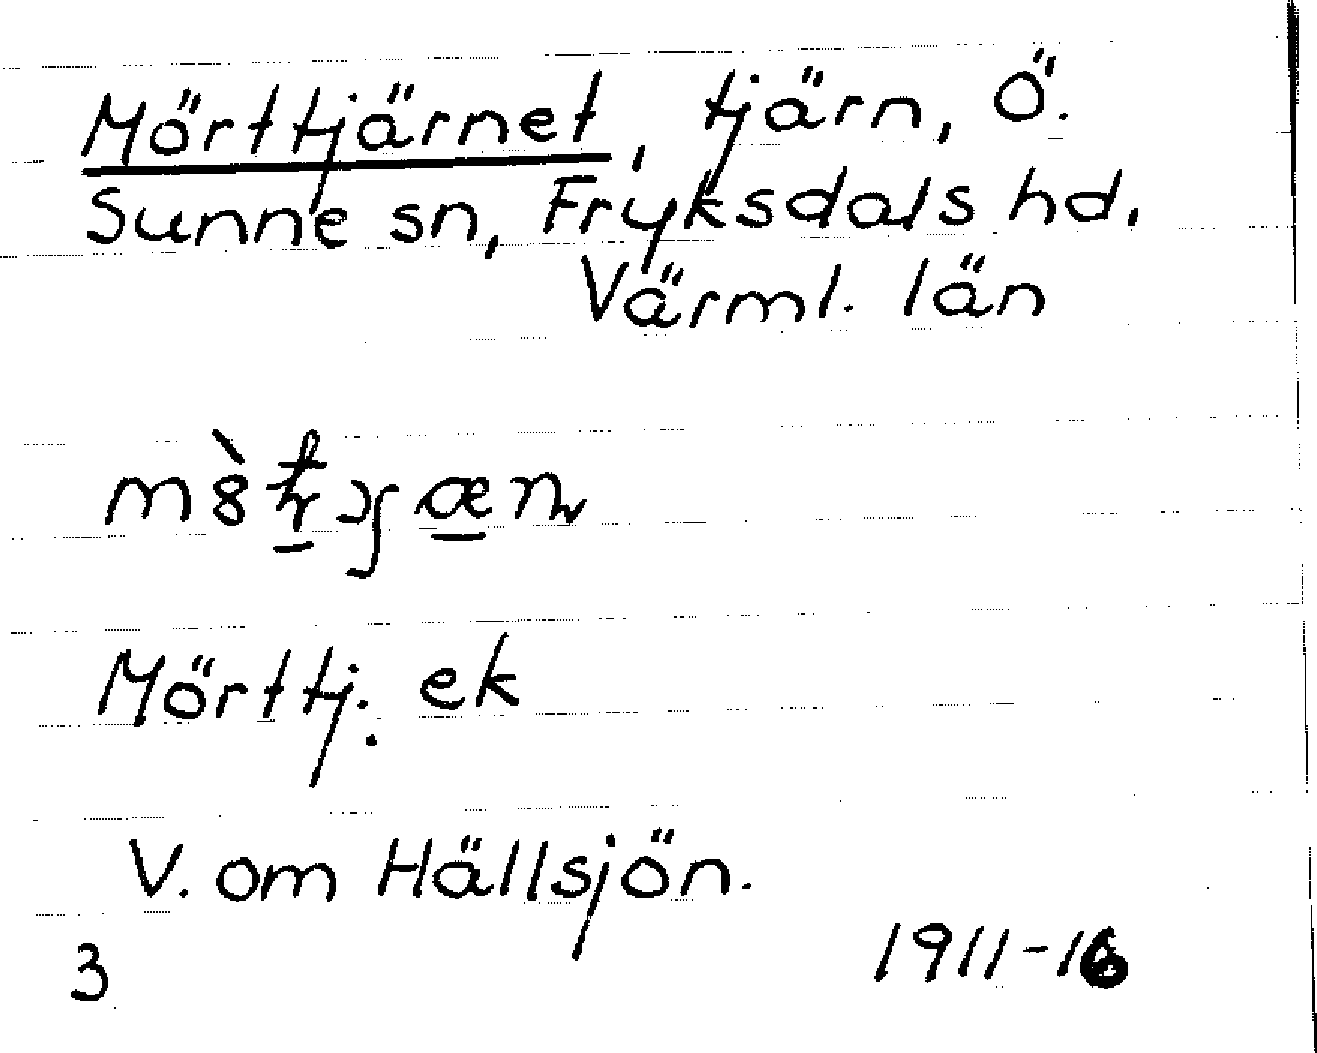 Mörttjärnet, tjärn, Ö.
Sunne sn, Fryksdals hd.
Värml. län
Mörttj. ek
V. om Hällsjön.
3 1911-16